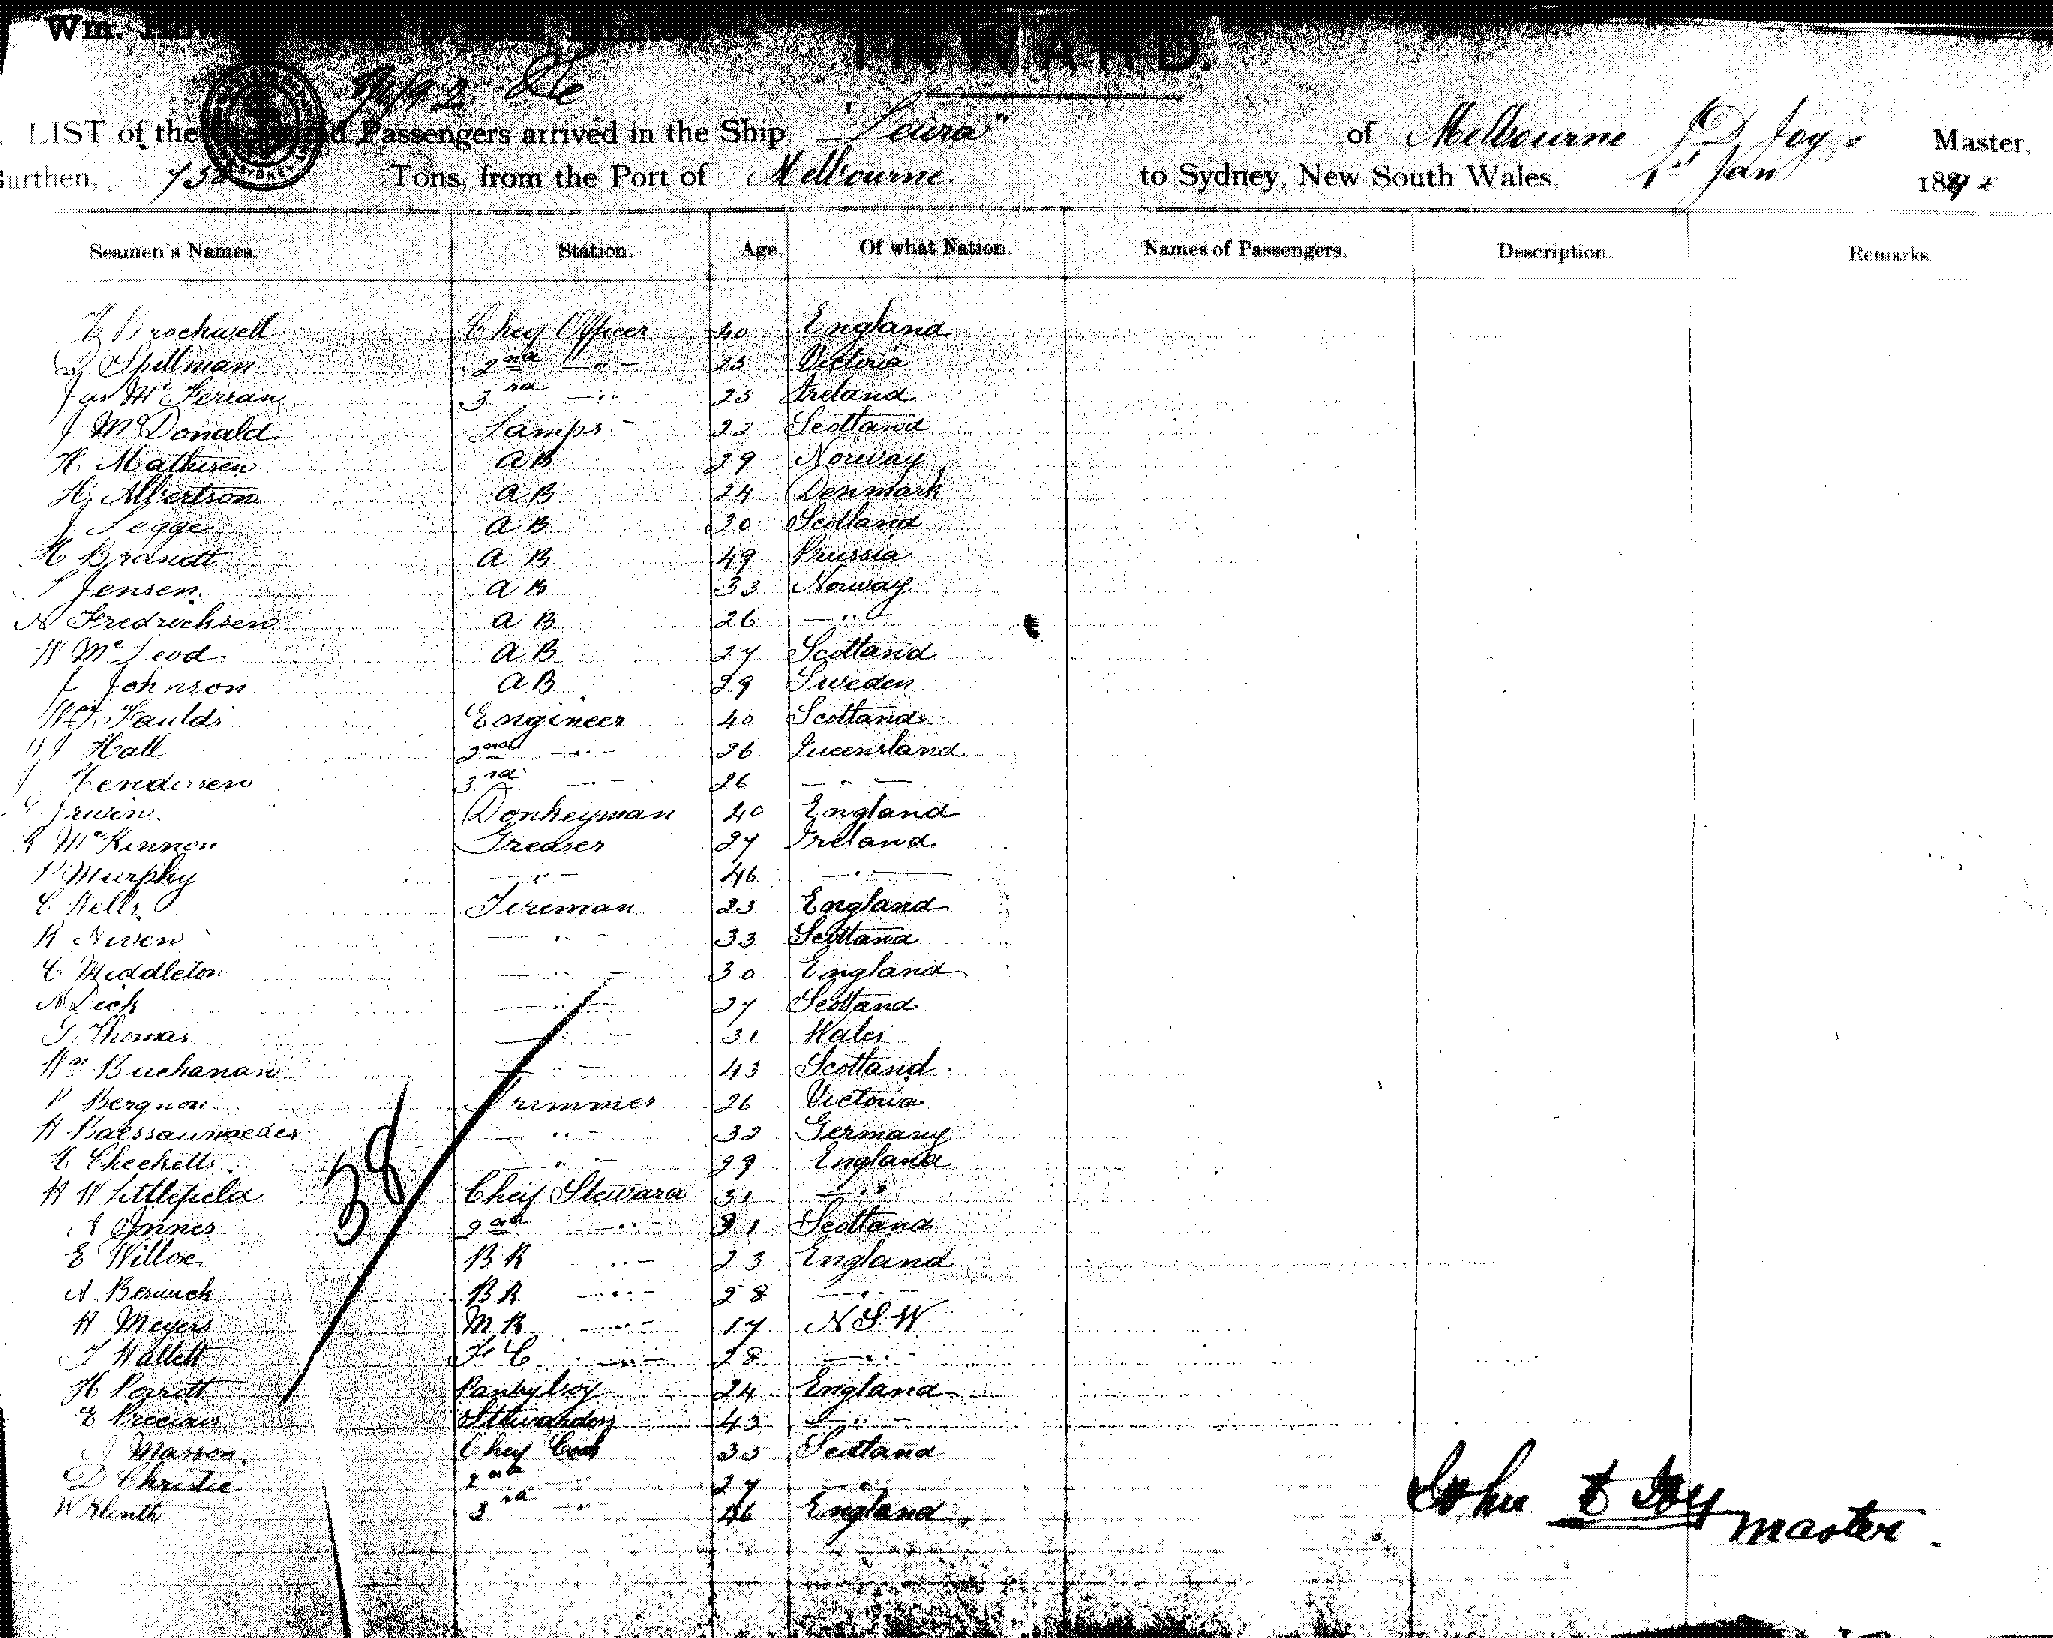 Wm.
INWARD.
LIST of the Crew and Passengers arrived in the Ship "Leura" of Melbourne Master,
Burthen, Tons, from the Port of Melbourne to Sydney, New South Wales, 1st Jan 1892
Seamen's Names. Station. Age Of what Nation. Names of Passengers. Description. Remarks.
Brockwell Chief Officer 40 England
Spillman 2nd -"- 25 Victoria
Jas McFerran 3rd -"- 25 Ireland
J McDonald Lamps 22 Scotland
H. Mathisen AB 29 Norway
H. Albertson AB 24 Denmark
J Legge AB 30 Scotland
H Brandt AB 49 Prussia
Jensen AB 33 Norway
N Fredrichsen AB 26 -"-
W McLeod AB 27 Scotland
Johnson AB 29 Sweden
Faulds Engineer 40 Scotland
Hall 2nd -"- 26 Queensland
3rd -"- 26 -"-
Irwin Donkeyman 40 England
McKinnon Greaser 27 Ireland
P Murphy -"- 46 -"-
C Wells Fireman 23 England
R Niven -"- 33 Scotland
C Middleton -"- 30 England
N Dick -"- 27 Scotland
G Thomas -"- 31 Wales
Wm Buchanan -"- 43 Scotland
P Bergnon Trimmer 26 Victoria
-"- 32 Germany
Checketts -"- 29 England
H W Littlefield Chief Steward 31 -"-
Innes 2nd -"- 21 Scotland
E Willox BR -"- 23 England
A Berwick BR -"- 28 -"-
H Meyers MR -"- 17 NSW
T Wallett FC -"- 28 -"-
H Perrott Pantryboy 24 England
E Precious Stewardess 43 -"-
Masson Chief Cook 33 Scotland
D Christie 2nd -"- 27 -"-
W 3rd -"- 46 England
38
John Joy
Master.